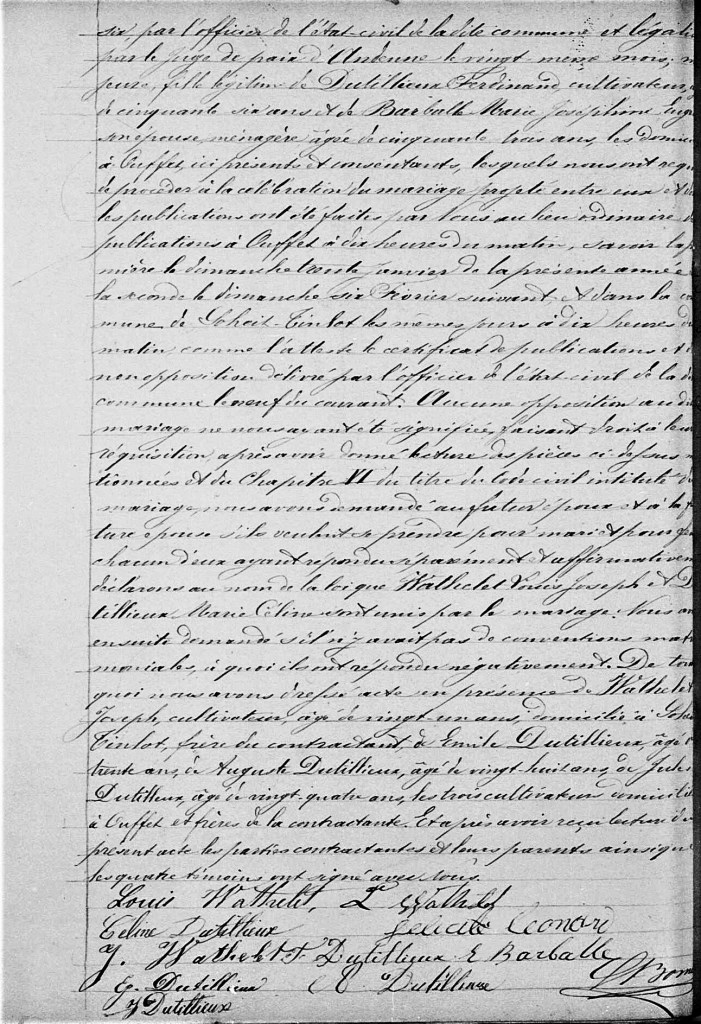 six par l'officier de l'état-civil de la dite commune et légali
par le Juge de paix d'Andenne le vingt même mois,
peure, fille légitime de Dutillieux Ferdinand cultivateur,
de cinquante six ans et de Barballe Marie Joséphine
son épouse, ménagère âgée de cinquante trois ans, les domici
à Ouffet, ici présents et consentants, lesquels nous ont requ
de procéder à la célébration du mariage projeté entre eux et d
les publications ont été faites par nous au lieu ordinaire d
publications à Ouffet à dix heures du matin, savoir la p
mière le dimanche trente Janvier de la présente année
la seconde le dimanche six Février suivant, et dans la co
mune de Soheit-Tinlot les mêmes jours à dix heures du
matin comme l'atteste le certificat de publications et d
non opposition délivré par l'officier de l'état-civil de la d
commune le neuf du courant. Aucune opposition au di
mariage ne nous ayant été signifiée, faisant droit à leur
réquisition, après avoir donné lecture des pièces ci-dessus
tionnées et du Chapitre VI du titre du code civil intitulé du
mariage, nous avons demandé au futur époux et à la f
ture épouse s'ils veulent se prendre pour mari et pour
chacun d'eux ayant répondu séparément et affirmativem
déclarons au nom de la loi que Wathelet Louis Joseph et D
tillieux Marie Céline sont unis par le mariage. Nous av
ensuite demandé s'il n'y avait pas de conventions matri
moniales, à quoi ils ont répondu négativement. De tou
quoi nous avons dressé acte en présence de Wathelet
Joseph, cultivateur, âgé de vingt-un ans, domicilié à Sohe
Tinlot, frère du contractant, de Emile Dutillieux, âgé d
trente ans, de Auguste Dutillieux, âgé de vingt huit ans, de Jule
Dutillieux, âgé de vingt-quatre ans, les trois cultivateurs domicilié
à Ouffet et frères de la contractante. Et après avoir reçu lecture du
présent acte les parties contractantes et leurs parents ainsi que
les quatre témoins ont signé avec nous.
Louis Wathelet, L Wathelet
Céline Dutillieux Félicité Leonard
J. Wathelet F Dutillieux E Barballe
E. Dutillieux A Dutillieux
J Dutillieux